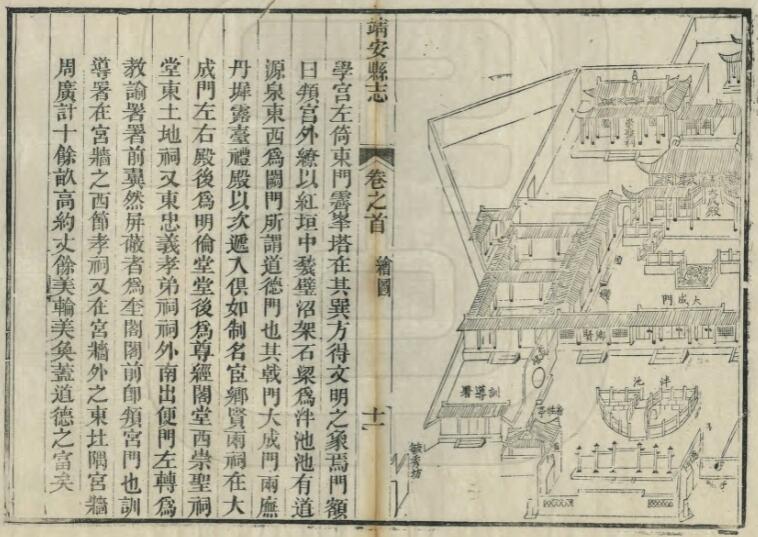 崇聖祠
大成殿
大成門
鄉賢
泮池
訓導署
毓秀坊
靖安縣志
卷之首
繪圖
十一
學宮左倚東門霽峯塔在其巽方得文明之象焉門額
曰頖宮外繚以紅垣中甃璧沼架石梁爲泮池池有道
源泉東西爲闢門所謂道德門也其戟門大成門兩廡
丹墀露臺禮殿以次遞入俱如制名宦鄉賢兩祠在大
成門左右殿後爲明倫堂堂後爲尊經閣堂西崇聖祠
堂東土地祠又東忠義孝弟祠祠外南出便門左轉爲
教諭署署前翼然屏敞者爲奎閣閣前卽頖宮門也訓
導署在宮牆之西節孝祠又在宮牆外之東北隅宮牆
周廣計十餘畝高約丈餘美輪美奐蓋道德之富矣